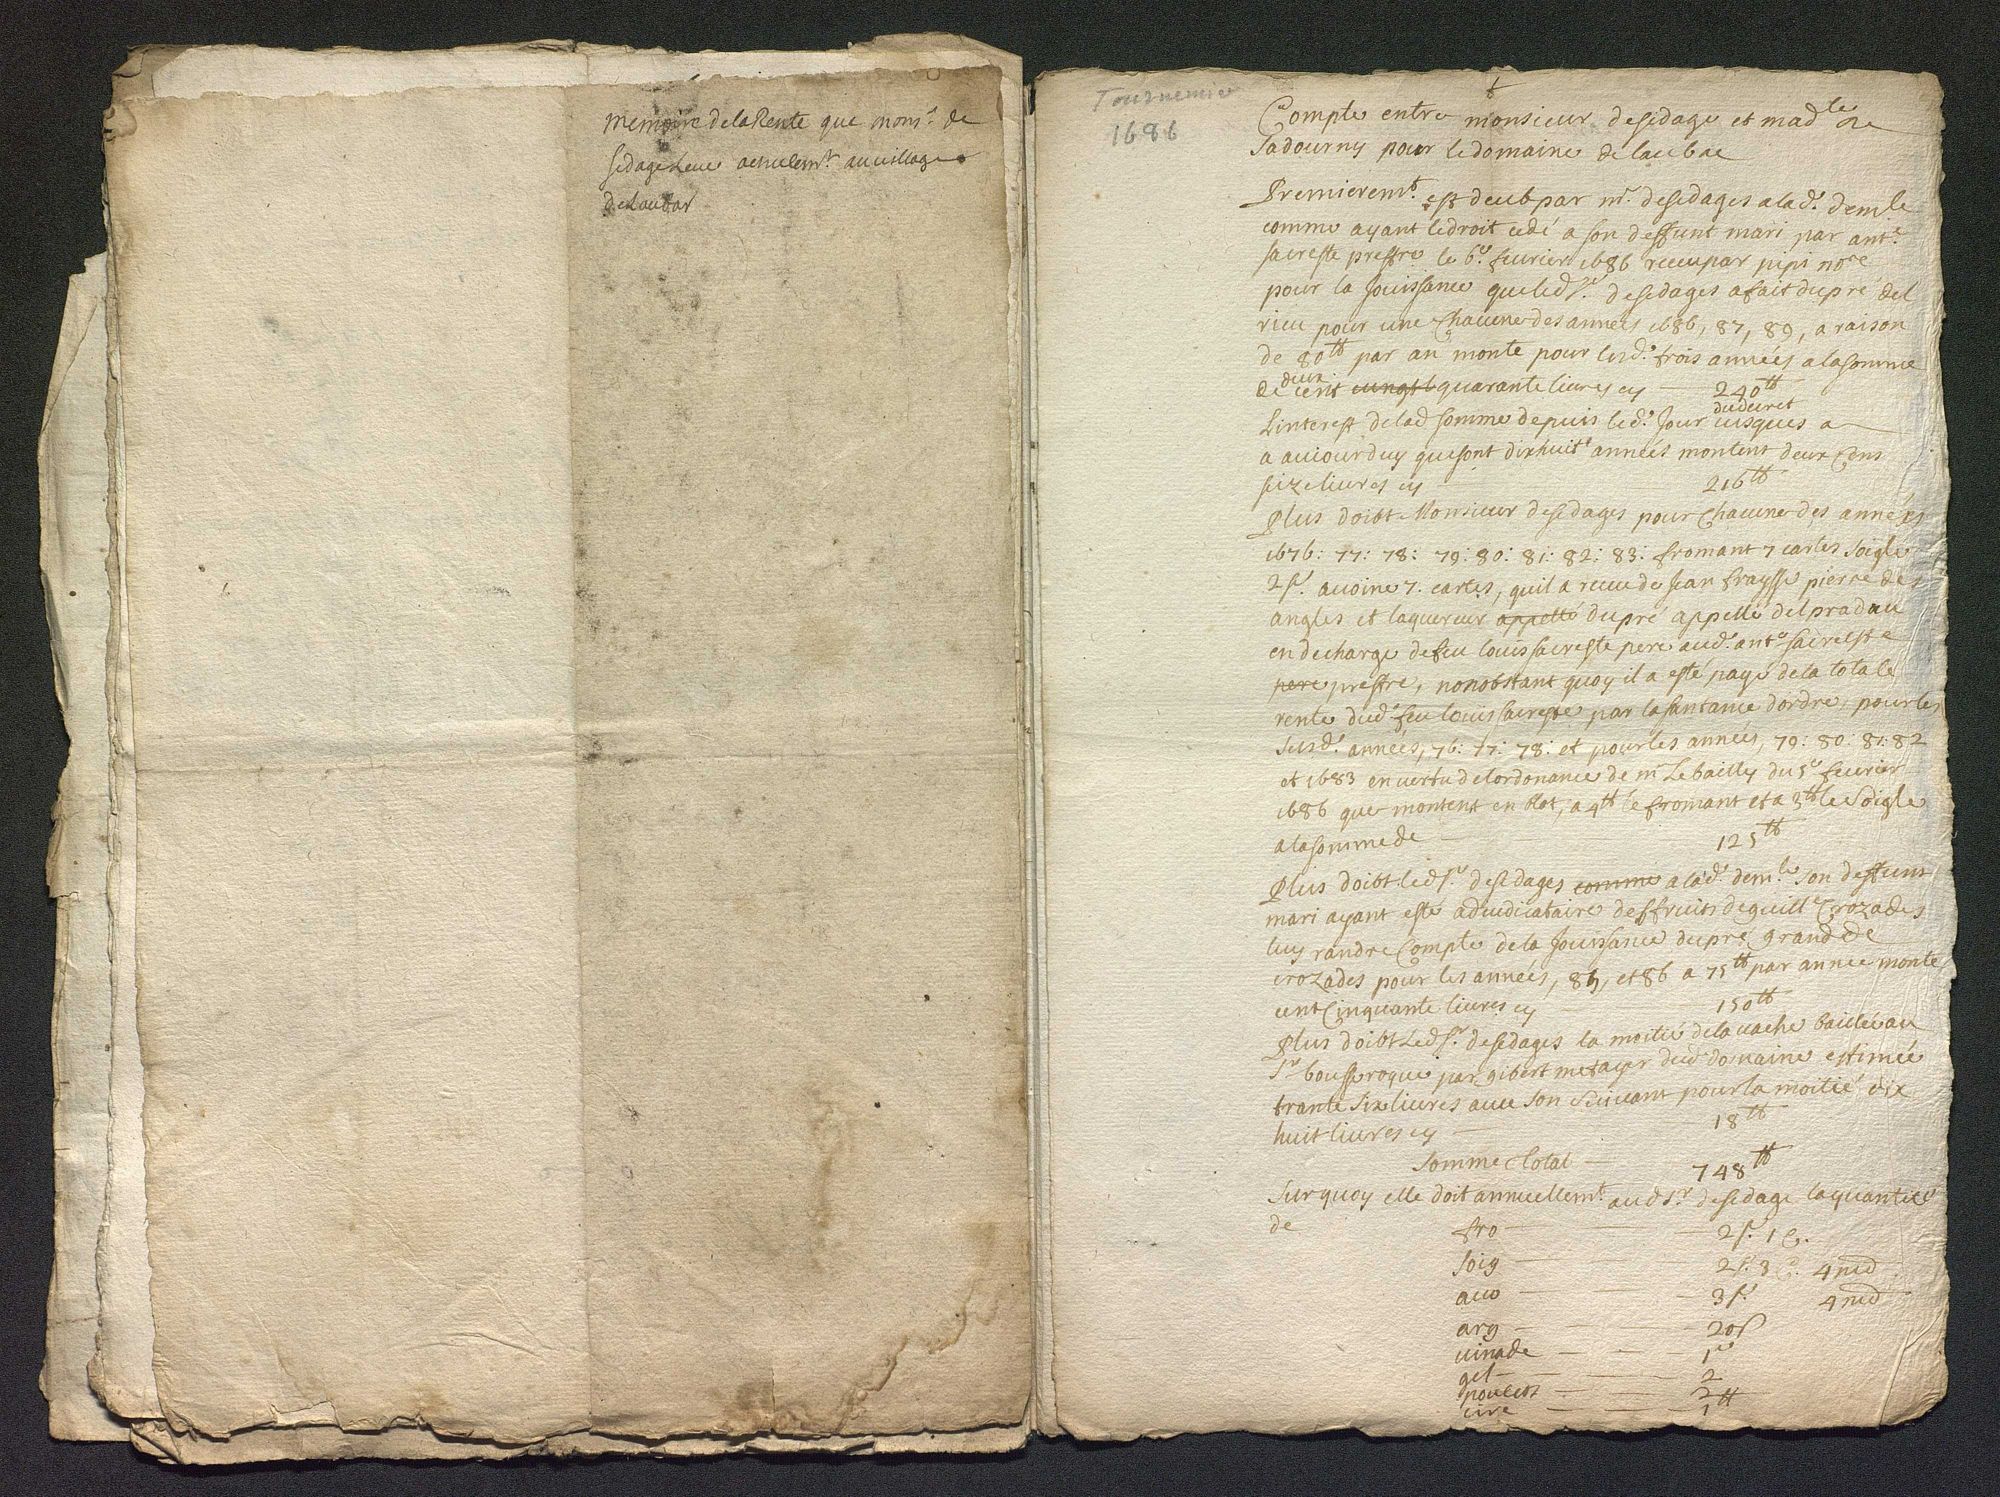 memoire de la Rente que mons.r de
sedages Leve actuelem.t au village
de Laubar
Tournemire
1686
Compte entre monsieur desedage et mad.le de
Sadourny pour le domaine de laubac
Premierem.t est deub par m.r desedages a lad.e dem.le
comme ayant le droit cedé a son deffunt mari par ant.e
sacreste prestre le 6.e feurier 1686 receu par pipi no.re
pour la Jouissance que led. s.r desedages a fait du pré del
rieu pour une Chacune des années 1686, 87, 89, a raison
de 80tt par an monte pour lesd. trois années a la somme
de deux cent vingt quarante liures cy 240tt
L'interest de lad somme depuis led. Jour du decret jusques a
a auiourduy que sont dixhuit années montent deux Cens
seize liures cy 216tt
Plus doibt Monsieur desedages pour Chacune des années
1676: 77: 78: 79: 80: 81: 82: 83: fromant 7 cartes soigle
2 s. auoine 7. cartes, quil a receu de Jean fraysse pierre des
angles et laquereur appellé du pré appellé del pradau
en decharge de feu louis sacreste pere aud. ant.e sacreste
pere prestre, nonobstant quoy il a esté payé de la totale
rente dud. feu louis sacreste par la santance dordre, pour les
susd. années, 76: 77: 78: et pour les années, 79: 80: 81: 82
et 1683 en vertu de lordonance de m.r Le bailly du 5.e feurier
1686 que montent en blot, a 4tt le fromant et a 3tt le Soigle
a la somme de 125tt
Plus doibt led s.r desedages comme a lad. dem.le son deffunt
mari ayant esté adiudicataire des fruits de guill.e Crozades
luy randre Compte de la Jouissance du pré grand de
crozades pour les années, 85, et 86 a 75tt par annee monte
cent Cinquante liures cy 150tt
Plus doibt Led s.r desedages la moitié de la uache baillée au
s.r bousseroque par gibert metayer dud domaine estimée
trante six liures auec son suiuant pour la moitié dix
huit liures cy 18tt
Somme total 748tt
Sur quoy elle doit annuellem.t aud s.r desedage la quantité
de fro 2 s. 1 C.
soig 2 s. 3 C. 4 md
auo 3 s. 4 md
arg 20 s
uinade 1
gel 2
poulets 2
cire 1tt